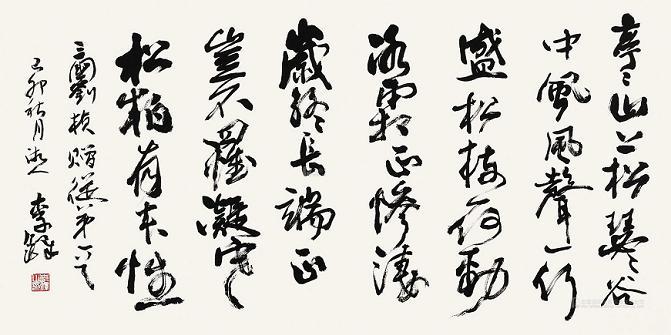 亭〻山上松瑟〻谷
中風風聲一何
盛松枝何勁
冰霜正慘淒
歲終長端正
豈不羅凝寒
松柏有本性
三國劉楨贈從弟
己卯秋月湘人 李鐸